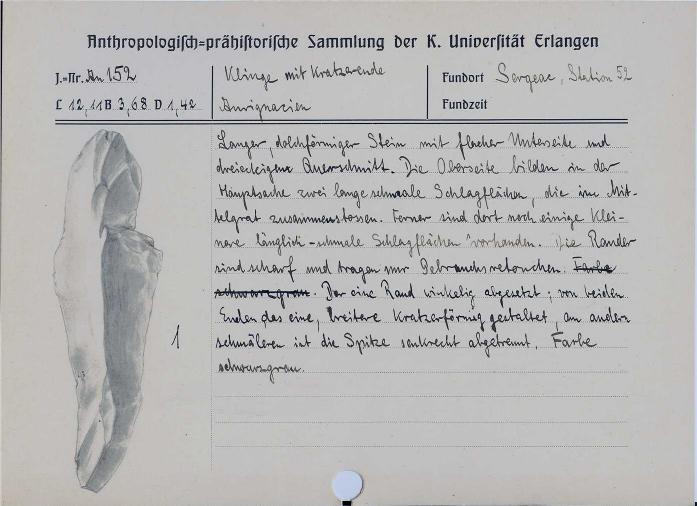 Anthropologisch=prähistorische Sammlung der K. Universität Erlangen
J.=Nr. An 152
L 12,11 B 3,68 D 1,42
Klinge mit Kratzerende
Aurignacien
Fundort Sergeac, Station 52
Fundzeit
Langer, dolchförmiger Stein mit flacher Unterseite und
dreieckigem Querschnitt. Die Oberseite bilden in der
Hauptsache zwei lange schmale Schlagflächen, die im Mit-
telgrat zusammenstossen. Ferner sind dort noch einige klei-
nere länglich-schmale Schlagflächen vorhanden. Die Ränder
sind scharf und tragen nur Gebrauchsretouchen. Farbe
schwarzgrau. Der eine Rand winkelig abgesetzt; von beiden
Enden das eine, breitere kratzerförmig gestaltet, am andern
schmäleren ist die Spitze senkrecht abgetrennt. Farbe
schwarzgrau.
1